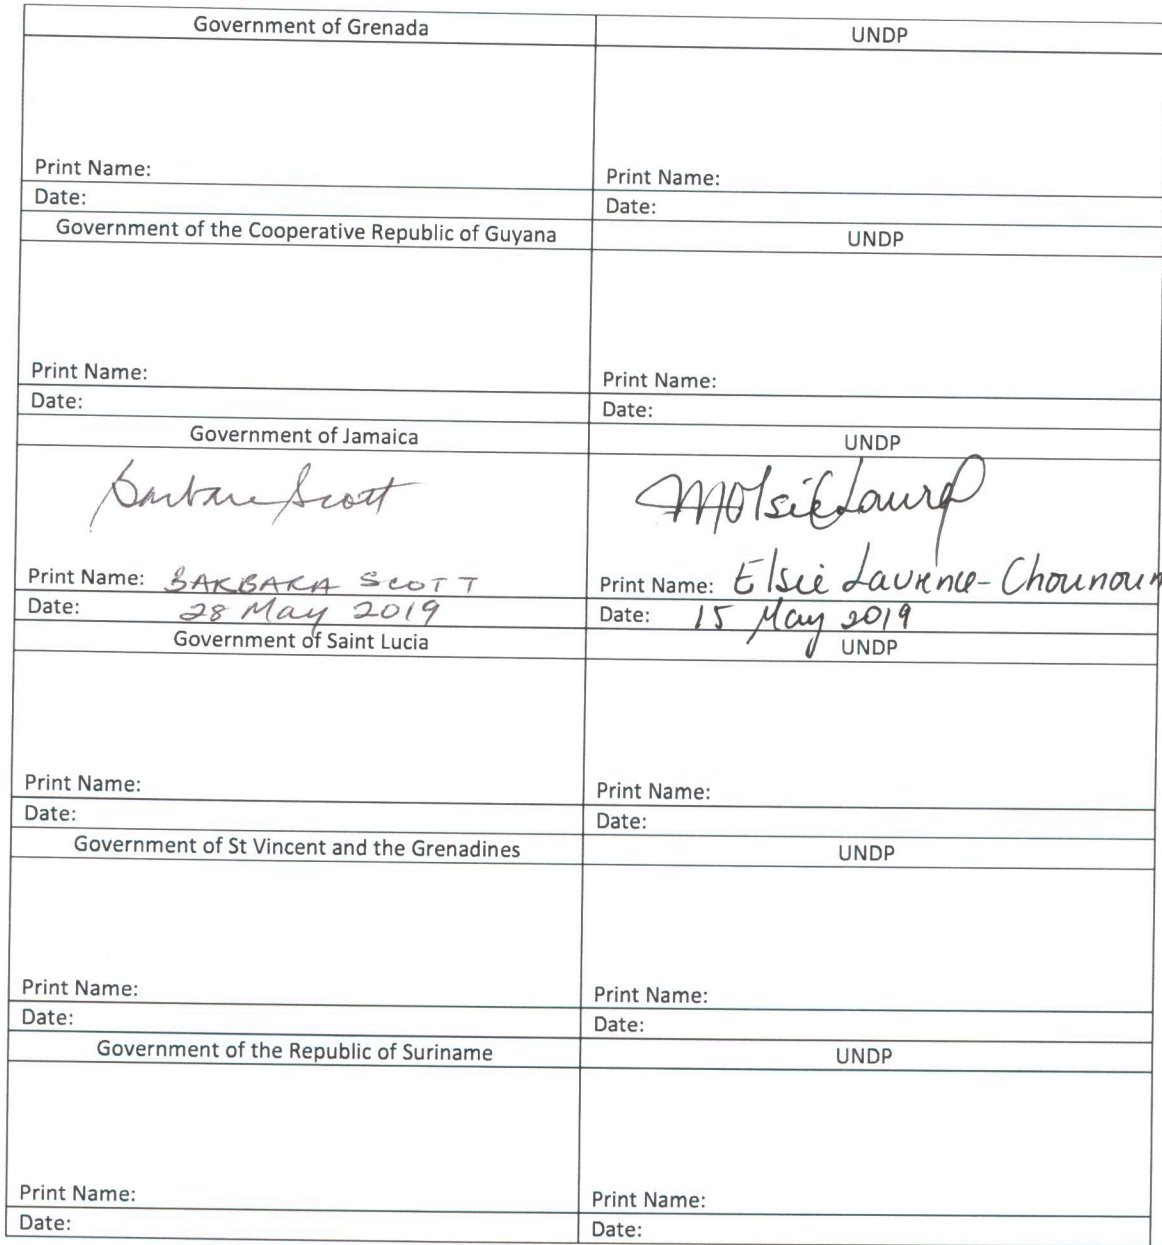 Government of Grenada UNDP
Print Name: Print Name:
Date: Date:
Government of the Cooperative Republic of Guyana UNDP
Print Name: Print Name:
Date: Date:
Government of Jamaica UNDP
Barbara Scott
Print Name: BARBARA SCOTT Print Name: Elsie Laurence-Chounoun
Date: 28 May 2019 Date: 15 May 2019
Government of Saint Lucia UNDP
Print Name: Print Name:
Date: Date:
Government of St Vincent and the Grenadines UNDP
Print Name: Print Name:
Date: Date:
Government of the Republic of Suriname UNDP
Print Name: Print Name:
Date: Date: